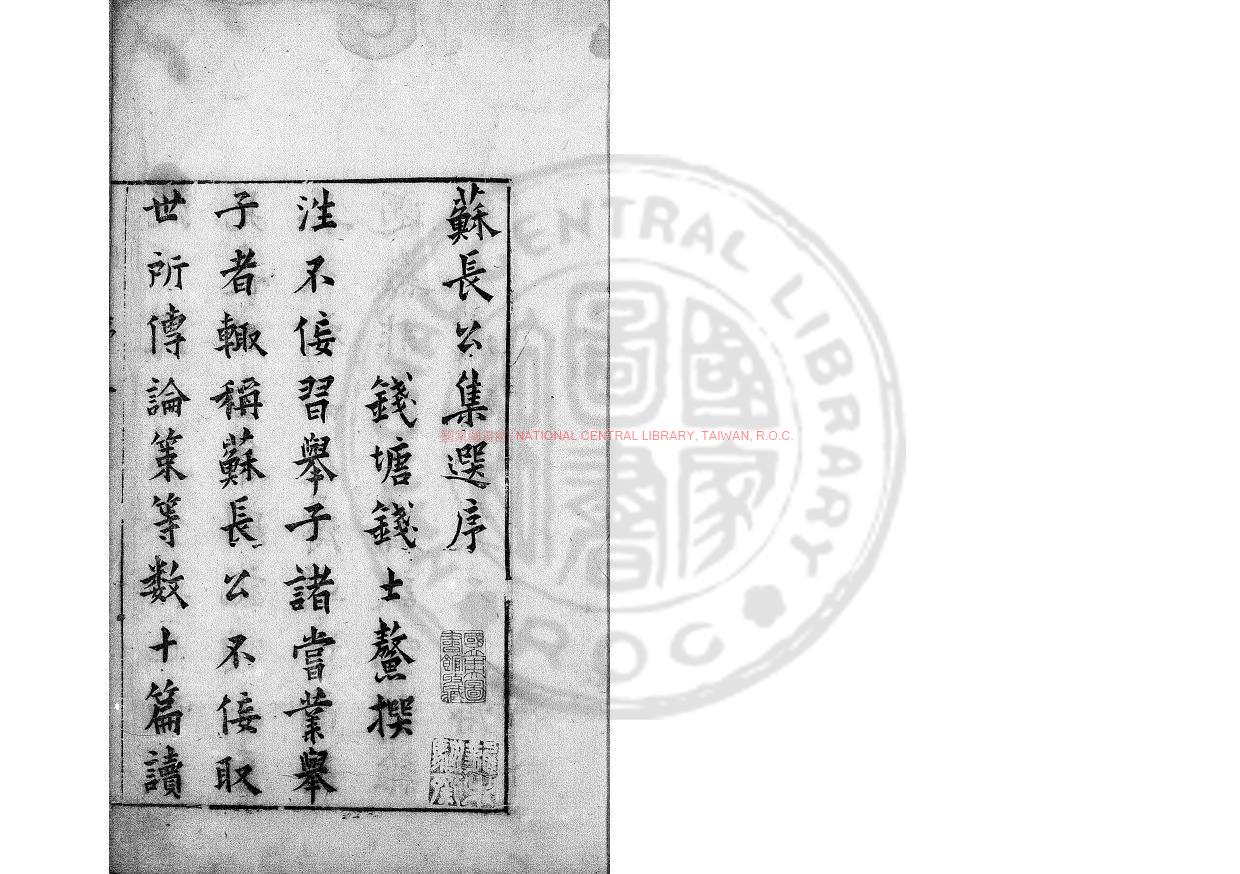 蘇長公集選序
錢塘錢士鰲撰
徃不佞習舉子諸嘗業舉
子者輙稱蘇長公不佞取
世所傳論策等数十篇讀
國家圖書館 NATIONAL CENTRAL LIBRARY, TAIWAN, R.O.C.
NATIONAL CENTRAL LIBRARY
R.O.C.
國家圖書
國立中央圖書館藏